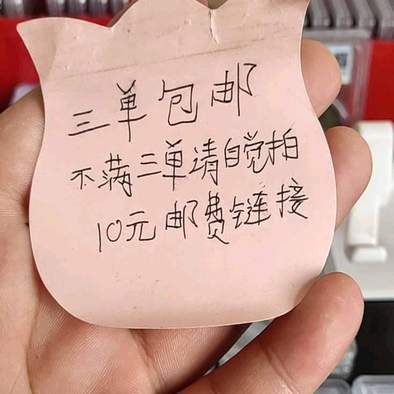 三单包邮
不满三单请自觉拍
10元邮费链接